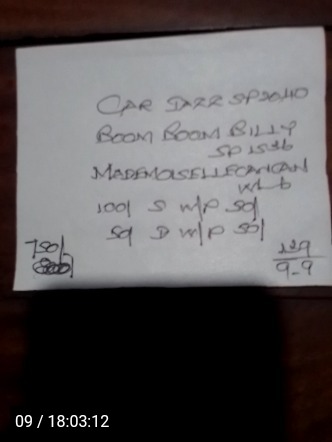 CAR DAZZ SP2040
BOOM BOOM BILLY
SP 1536
MADEMOISELLECANCAN
100/ S W/P 50/
50 D W/P 50/
750/
129
9-9
09 / 18:03:12